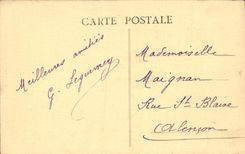 CARTE POSTALE
Meilleures amitiés
G. Lequerney
Mademoiselle
Maignan
Rue St Blaise
Alençon